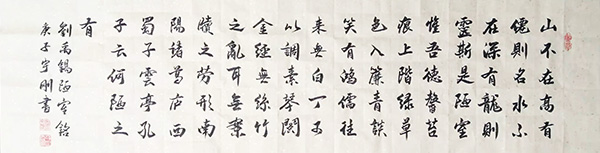 山不在高有
僊則名水不
在深有龍則
靈斯是陋室
惟吾德馨苔
痕上階綠草
色入簾青談
笑有鴻儒往
来無白丁可
以調素琴閱
金經無絲竹
之亂耳無案
牘之勞形南
陽諸葛庐西
蜀子雲亭孔
子云何陋之
有
劉禹錫陋室銘
庚子宇刚書